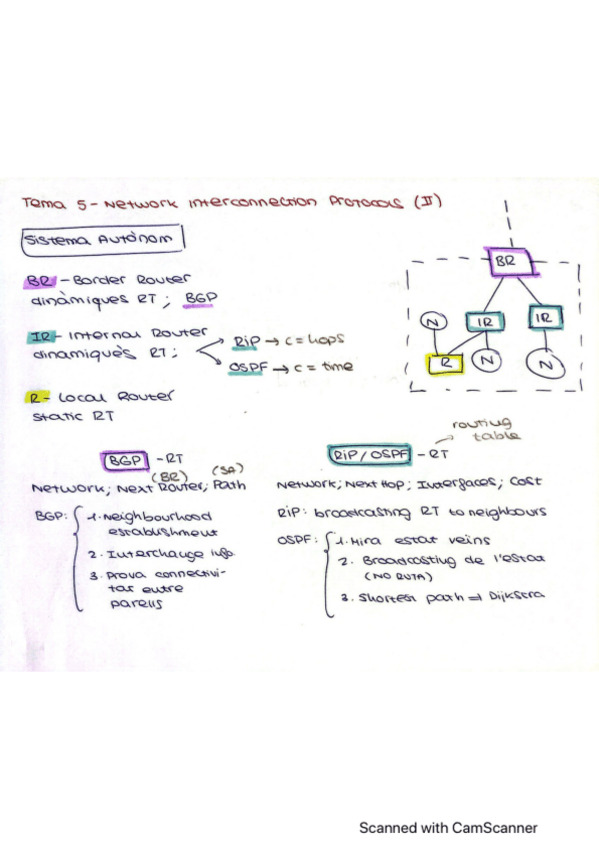 Tema 5 - Network Interconnection Protocols (II)
Sistema Autònom
BR - Border Router
dinàmiques RT ; BGP
IR - Internal Router
dinamiquès RT ;
RIP → c = hops
OSPF → c = time
R - Local Router
static RT
BR
N
IR
IR
R
N
N
BGP - RT
(BR) (SA)
Network; Next Router; Path
BGP: 1. Neighbourhood
establishment
2. Interchange info
3. Prova connectivi-
tat entre
parells
routing
table
RIP / OSPF - RT
Network; Next Hop; Interfaces; Cost
RIP: broadcasting RT to neighbours
OSPF: 1. Mira estat veins
2. Broadcasting de l'estat
(NO RUTA)
3. Shortest path ⇒ Dijkstra
Scanned with CamScanner